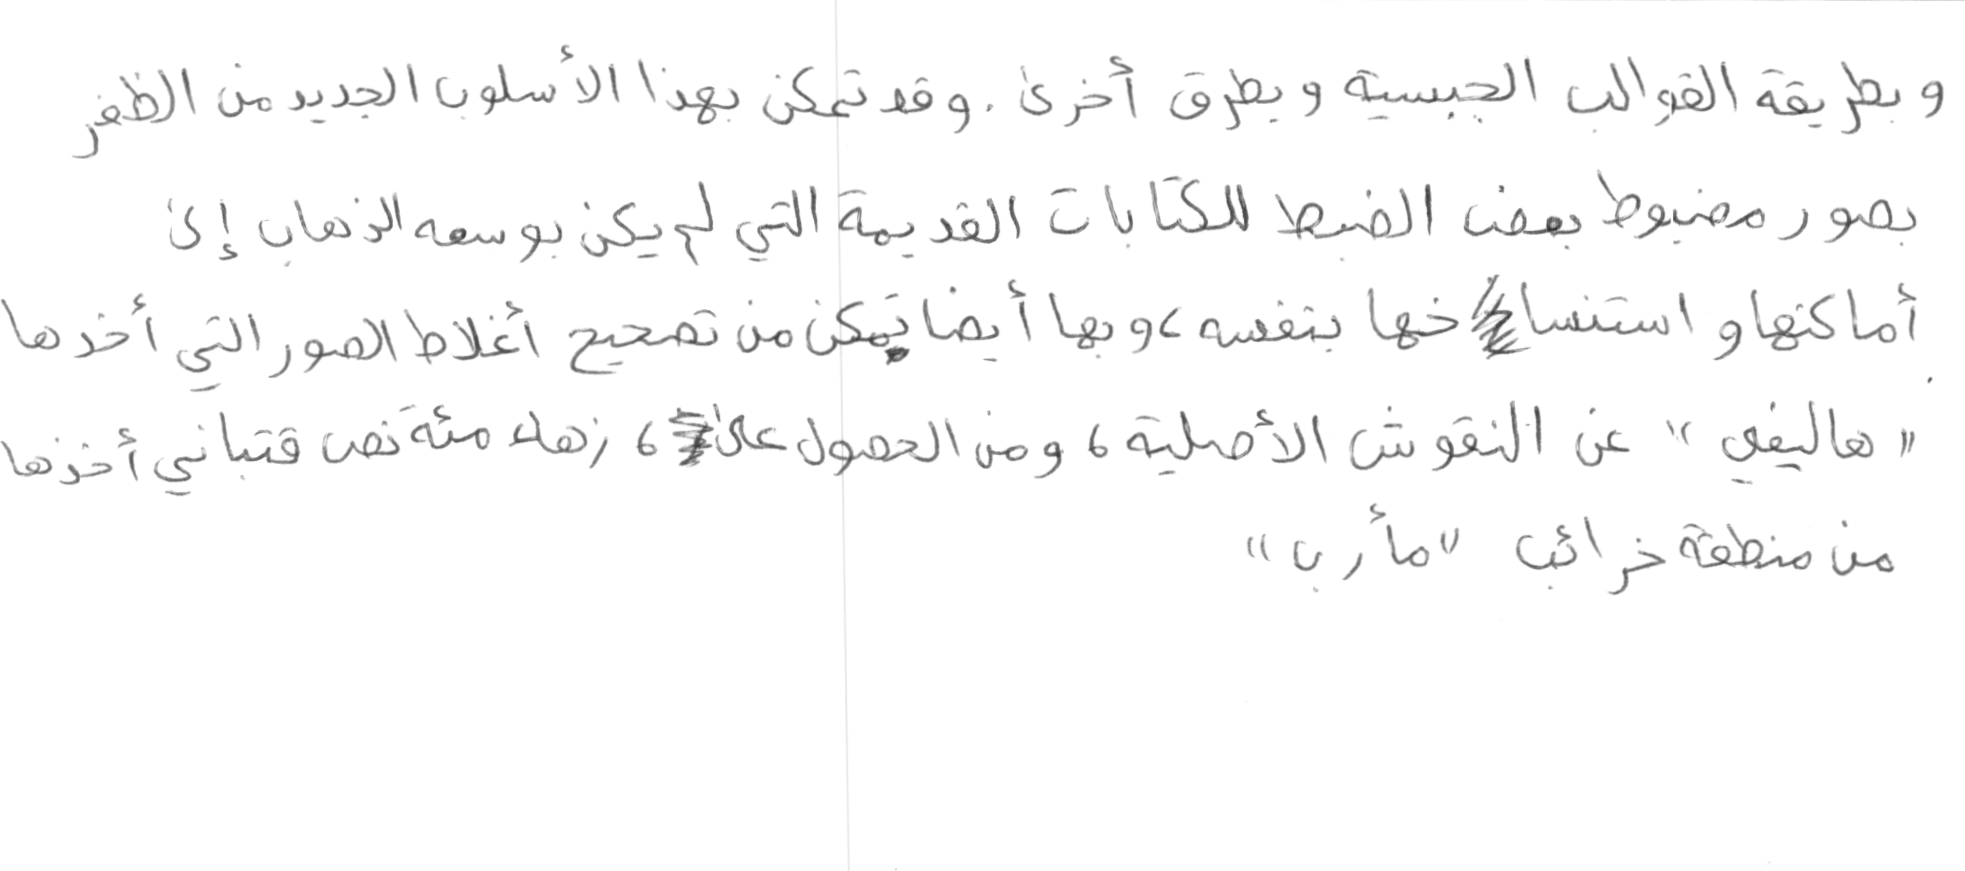 وبطريقة القوالب الجبسية وبطرق أخرى. وقد تمكن بهذا الأسلوب الجديد من الظفر
بصور مضبوط بعض الضبط للكتابات القديمة التي لم يكن بوسعه الذهاب إلى
أماكنها واستنساخها بنفسه، وبها أيضا تمكن من تصحيح أغلاط الصور التي أخدها
"هاليفي" عن النقوش الأصلية، ومن الحصول على، زهاء مئة نص قتباني أخذها
من منطقة خرائب "مأرب"